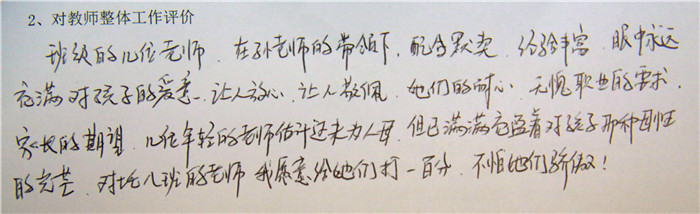 2、对教师整体工作评价
班级的几位老师，在孙老师的带领下，配合默契，经验丰富，眼中永远
充满对孩子的爱意，让人放心，让人敬佩，她们的耐心，无愧职业的要求，
家长的期望，几位年轻的老师估计还未为人母，但已满满充盈着对孩子那种母性
的光芒，对托儿班的老师我愿意给她们打一百分，不怕她们骄傲！